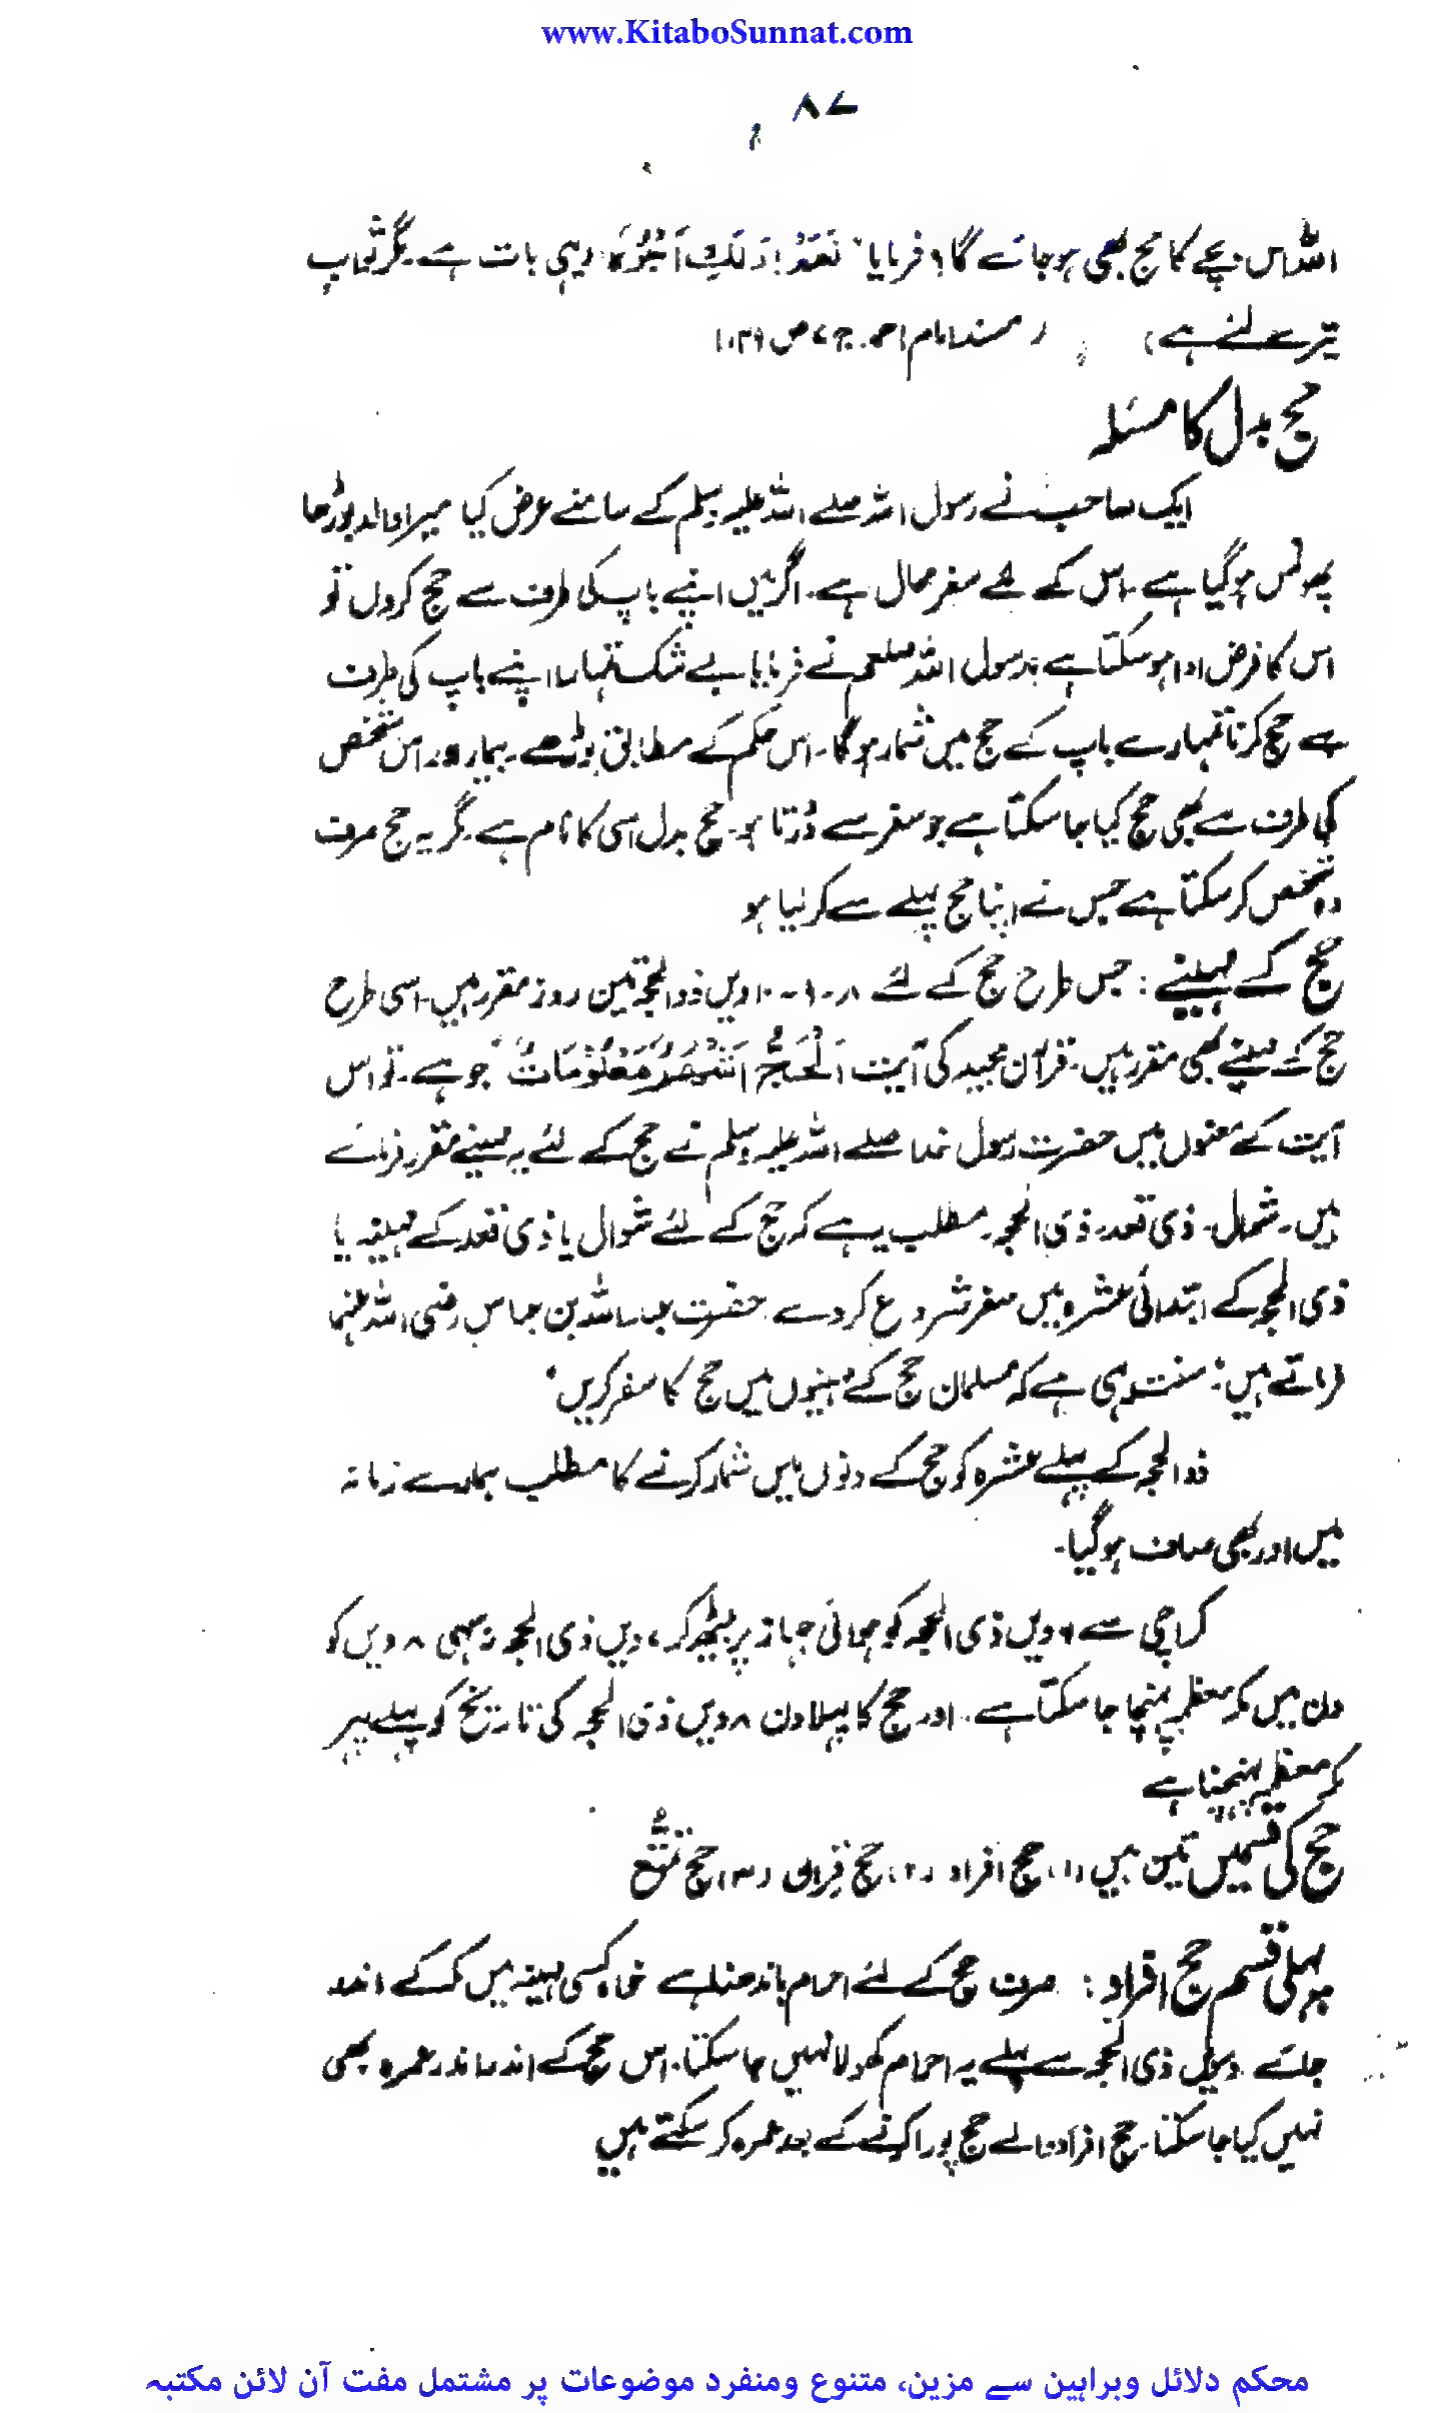 www.KitaboSunnat.com
۸۷
اللہ اس بچے کا حج بھی ہو جائے گا؟ فرمایا "نَعَمْ! وَلَكِ اَجْرُهٗ" (یہی بات ہے۔ مگر ثواب
تیرے لئے ہے) (مسند امام احمد۔ ج ۷ ص ۱۰۳۹
حج بدل کا مسئلہ
ایک صاحب نے رسول اللہ صلے اللہ علیہ وسلم کے سامنے عرض کیا میرا والد بوڑھا
پھونس ہو گیا ہے۔ اس کے لئے سفر محال ہے۔ اگر میں اپنے باپ کی طرف سے حج کردوں تو
اس کا فرض ادا ہو سکتا ہے؟ رسول اللہ صلعم نے فرمایا بے شک تمہارا اپنے باپ کی طرف
سے حج کرنا تمہارے باپ کے حج میں شمار ہوگا۔ اس حکم کے مطابق بوڑھے۔ بیمار اور اس شخص
کی طرف سے بھی حج کیا جا سکتا ہے جو سفر سے ڈرتا ہو۔ حج بدل اسی کا نام ہے۔ مگر یہ حج صرف
وہ شخص کر سکتا ہے جس نے اپنا حج پہلے سے کر لیا ہو
حج کے مہینے : جس طرح حج کے لئے ۸۔۹۔۱۰ ویں ذوالحجہ تین روز مقرر ہیں۔ اسی طرح
حج کے مہینے بھی مقرر ہیں۔ قرآن مجید کی آیت اَلْحَجُّ اَشْهُرٌ مَعْلُوْمَاتٌ" جو ہے۔ تو اس
آیت کے معنوں میں حضرت رسول خدا صلے اللہ علیہ وسلم نے حج کے لئے یہ مہینے مقرر فرمائے
ہیں۔ شوال۔ ذی قعد۔ ذی الحجہ۔ مطلب یہ ہے کہ حج کے لئے شوال یا ذی قعد کے مہینہ یا
ذی الحجہ کے ابتدائی عشرہ میں سفر شروع کردے۔ حضرت عبد اللہ بن عباس رضی اللہ عنہما
فرماتے ہیں: "سنت وہی ہے کہ مسلمان حج کے مہینوں میں حج کا سفر کریں"
ذوالحجہ کے پہلے عشرہ کو حج کے دنوں میں شمار کرنے کا مطلب ہمارے زمانہ
میں اور بھی صاف ہوگیا۔
کراچی سے ۶ ویں ذی الحجہ کو ہوائی جہاز پر بیٹھ کر ۷ ویں ذی الحجہ نہ سہی ۸ ویں کو
دن میں مکہ معظمہ پہنچا جا سکتا ہے۔ اور حج کا پہلا دن ۸ ویں ذی الحجہ کی تاریخ کو پہلے پہر
مکہ معظمہ پہنچنا ہے
حج کی قسمیں تین ہیں (۱) حج افراد (۲) حج قِران (۳) حج تمَتُّع
پہلی قسم حج افراد : صرف حج کے لئے احرام باندھنا ہے خواہ کسی مہینہ میں مکہ کے اندر
جائے دسویں ذی الحجہ سے پہلے یہ احرام کھولا نہیں جا سکتا۔ اس حج کے اندر اندر عمرہ بھی
نہیں کیا جا سکتا۔ حج افراد والے حج پورا کرنے کے بعد عمرہ کر سکتے ہیں
محکم دلائل وبراہین سے مزین، متنوع ومنفرد موضوعات پر مشتمل مفت آن لائن مکتبہ